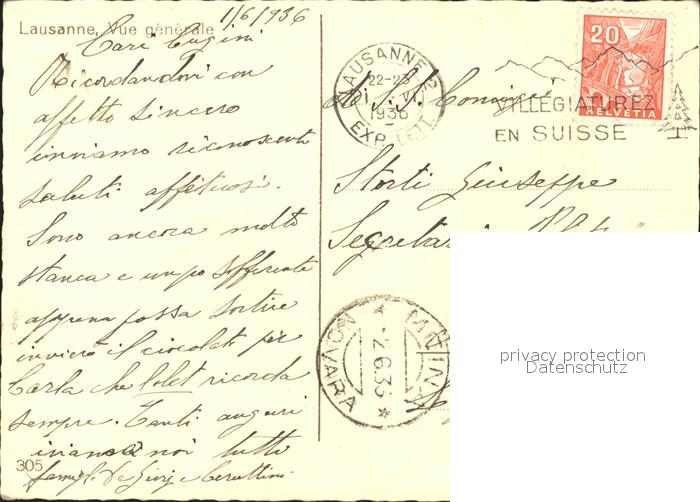 Lausanne, Vue générale
1/6/1936
Cari Cugini
Ricordandovi con
affetto sincero
inviamo riconoscenti
saluti affettuosi.
Sono ancora molto
stanca e un po sofferente
appena possa sortire
invierò il cioccolato per
Carla che Lolet ricorda
sempre. Tanti auguri
noi tutti
famigl. De Giorgi e Cerutti
305
LAUSANNE
22-23
1936
EXP. LETT.
VILLÉGIATUREZ
EN SUISSE
20
HELVETIA
Ai S. S. Coniugi
Storti Giuseppe
NOVARA
2.6.36
privacy protection
Datenschutz